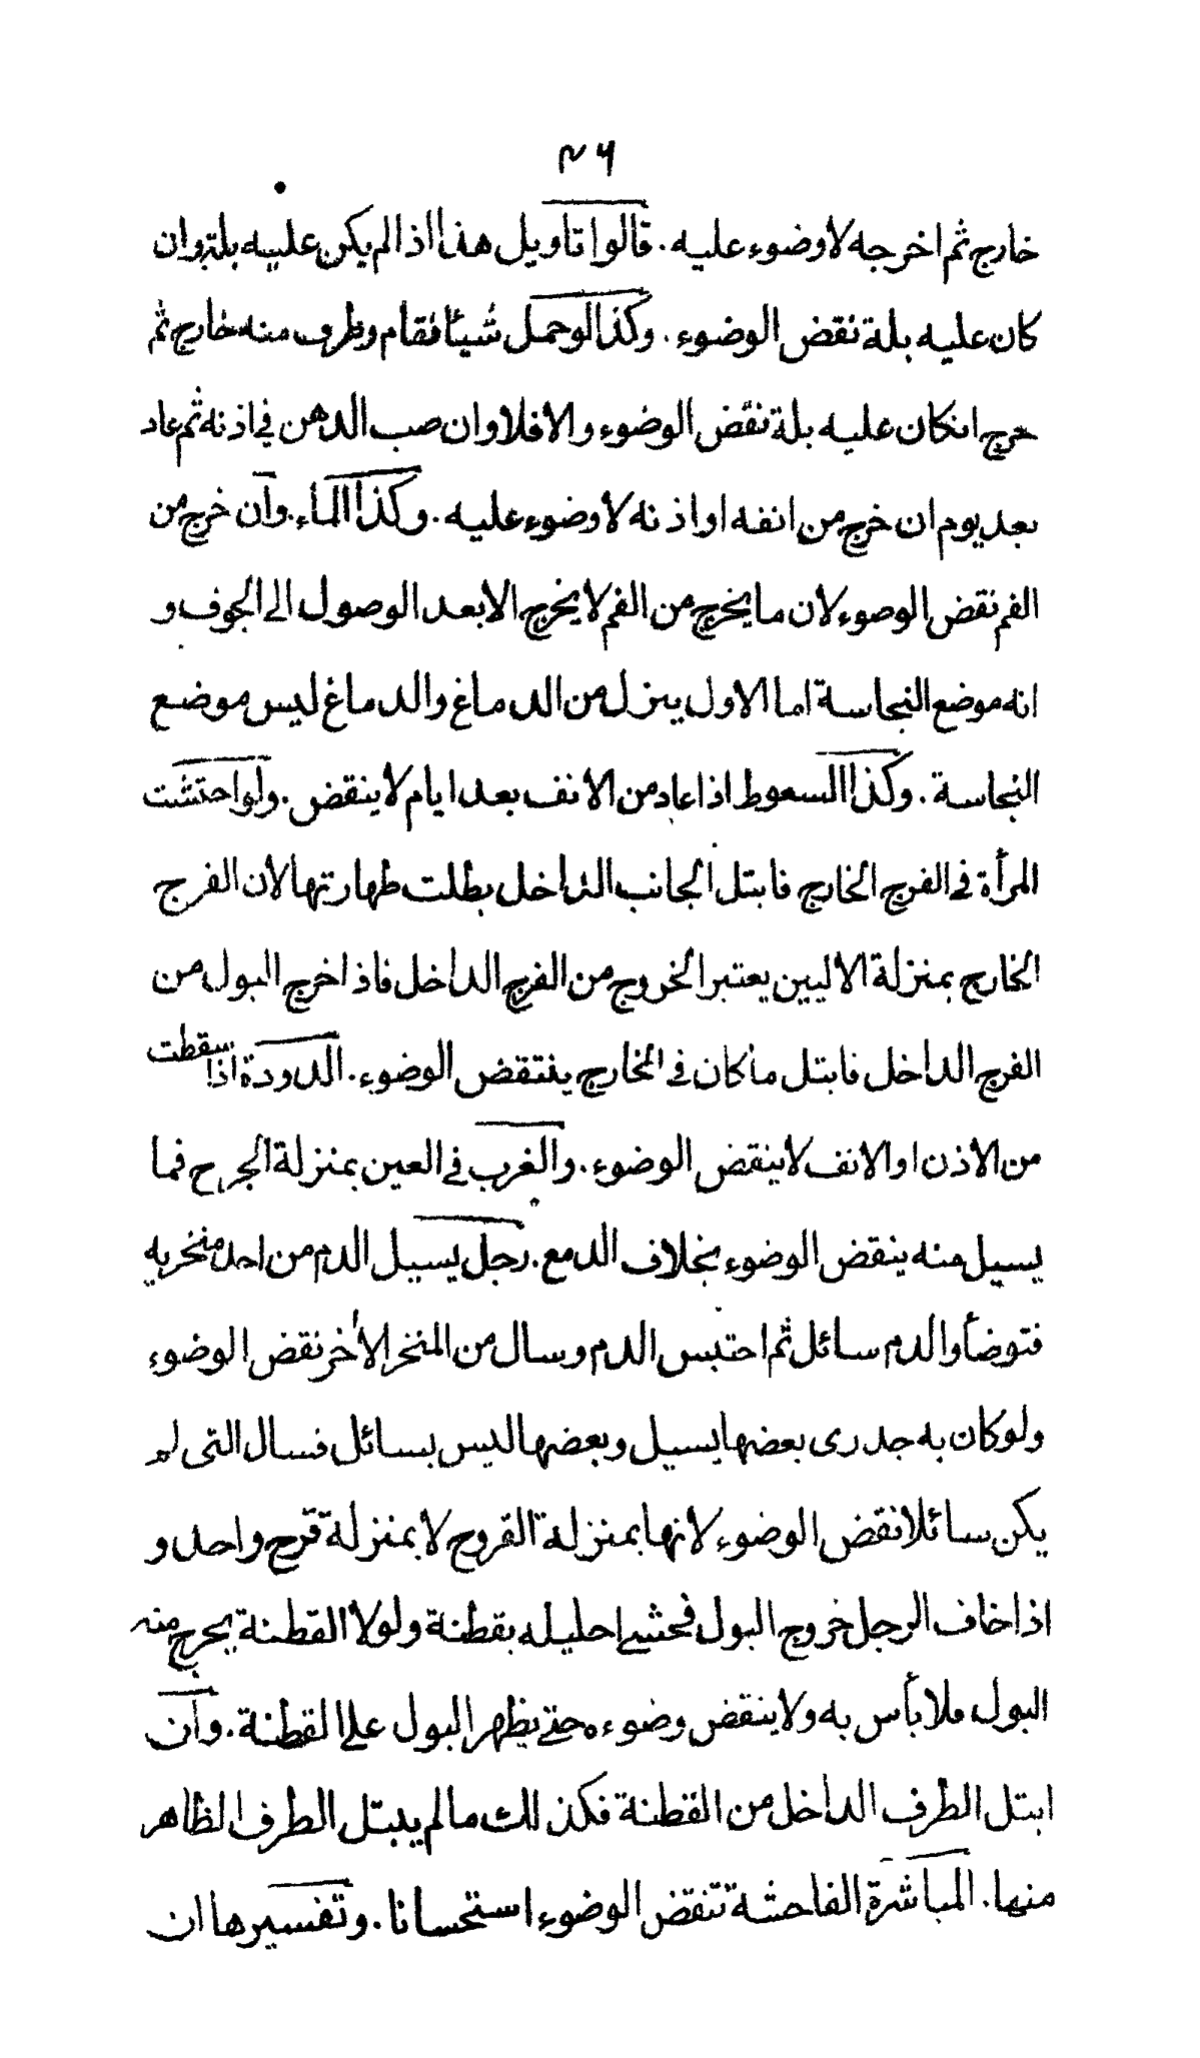 ٣٦
خارج ثم اخرجه لا وضوء عليه. قالوا تاويل هذا اذا لم يكن عليه بلة وان
كان عليه بلة نقض الوضوء. وكذا لو حمل شيئا فقام وطرف منه خارج ثم
خرج انكان عليه بلة نقض الوضوء والا فلا وان صب الدهن في اذنه ثم عاد
بعد يوم ان خرج من انفه او اذنه لا وضوء عليه. وكذا الماء. وان خرج من
الفم نقض الوضوء لان ما يخرج من الفم لا يخرج الا بعد الوصول الى الجوف و
انه موضع النجاسة اما الاول ينزل من الدماغ والدماغ ليس موضع
النجاسة. وكذا السعوط اذا عاد من الانف بعد ايام لا ينقض. ولو احتشت
المرأة في الفرج الخارج فابتل الجانب الداخل بطلت طهارتها لان الفرج
الخارج بمنزلة الاليين يعتبر الخروج من الفرج الداخل فاذا خرج البول من
الفرج الداخل فابتل ما كان في الخارج ينتقض الوضوء. الدودة اذا سقطت
من الاذن او الانف لا ينقض الوضوء. والغرب في العين بمنزلة الجرح فما
يسيل منه ينقض الوضوء بخلاف الدمع. رجل يسيل الدم من احد منخريه
فتوضأ والدم سائل ثم احتبس الدم وسال من المنخر الأخر نقض الوضوء
ولو كان به جدرى بعضها يسيل وبعضها ليس بسائل فسال التى لم
يكن سائلا نقض الوضوء لانها بمنزلة القروح لا بمنزلة قرح واحد و
اذا خاف الرجل خروج البول فحشى احليله بقطنة ولولا القطنة يخرج منه
البول فلا بأس به ولا ينقض وضوءه حتى يظهر البول على القطنة. وان
ابتل الطرف الداخل من القطنة فكذلك ما لم يبتل الطرف الظاهر
منها. المباشرة الفاحشة تنقض الوضوء استحسانا. وتفسيرها ان